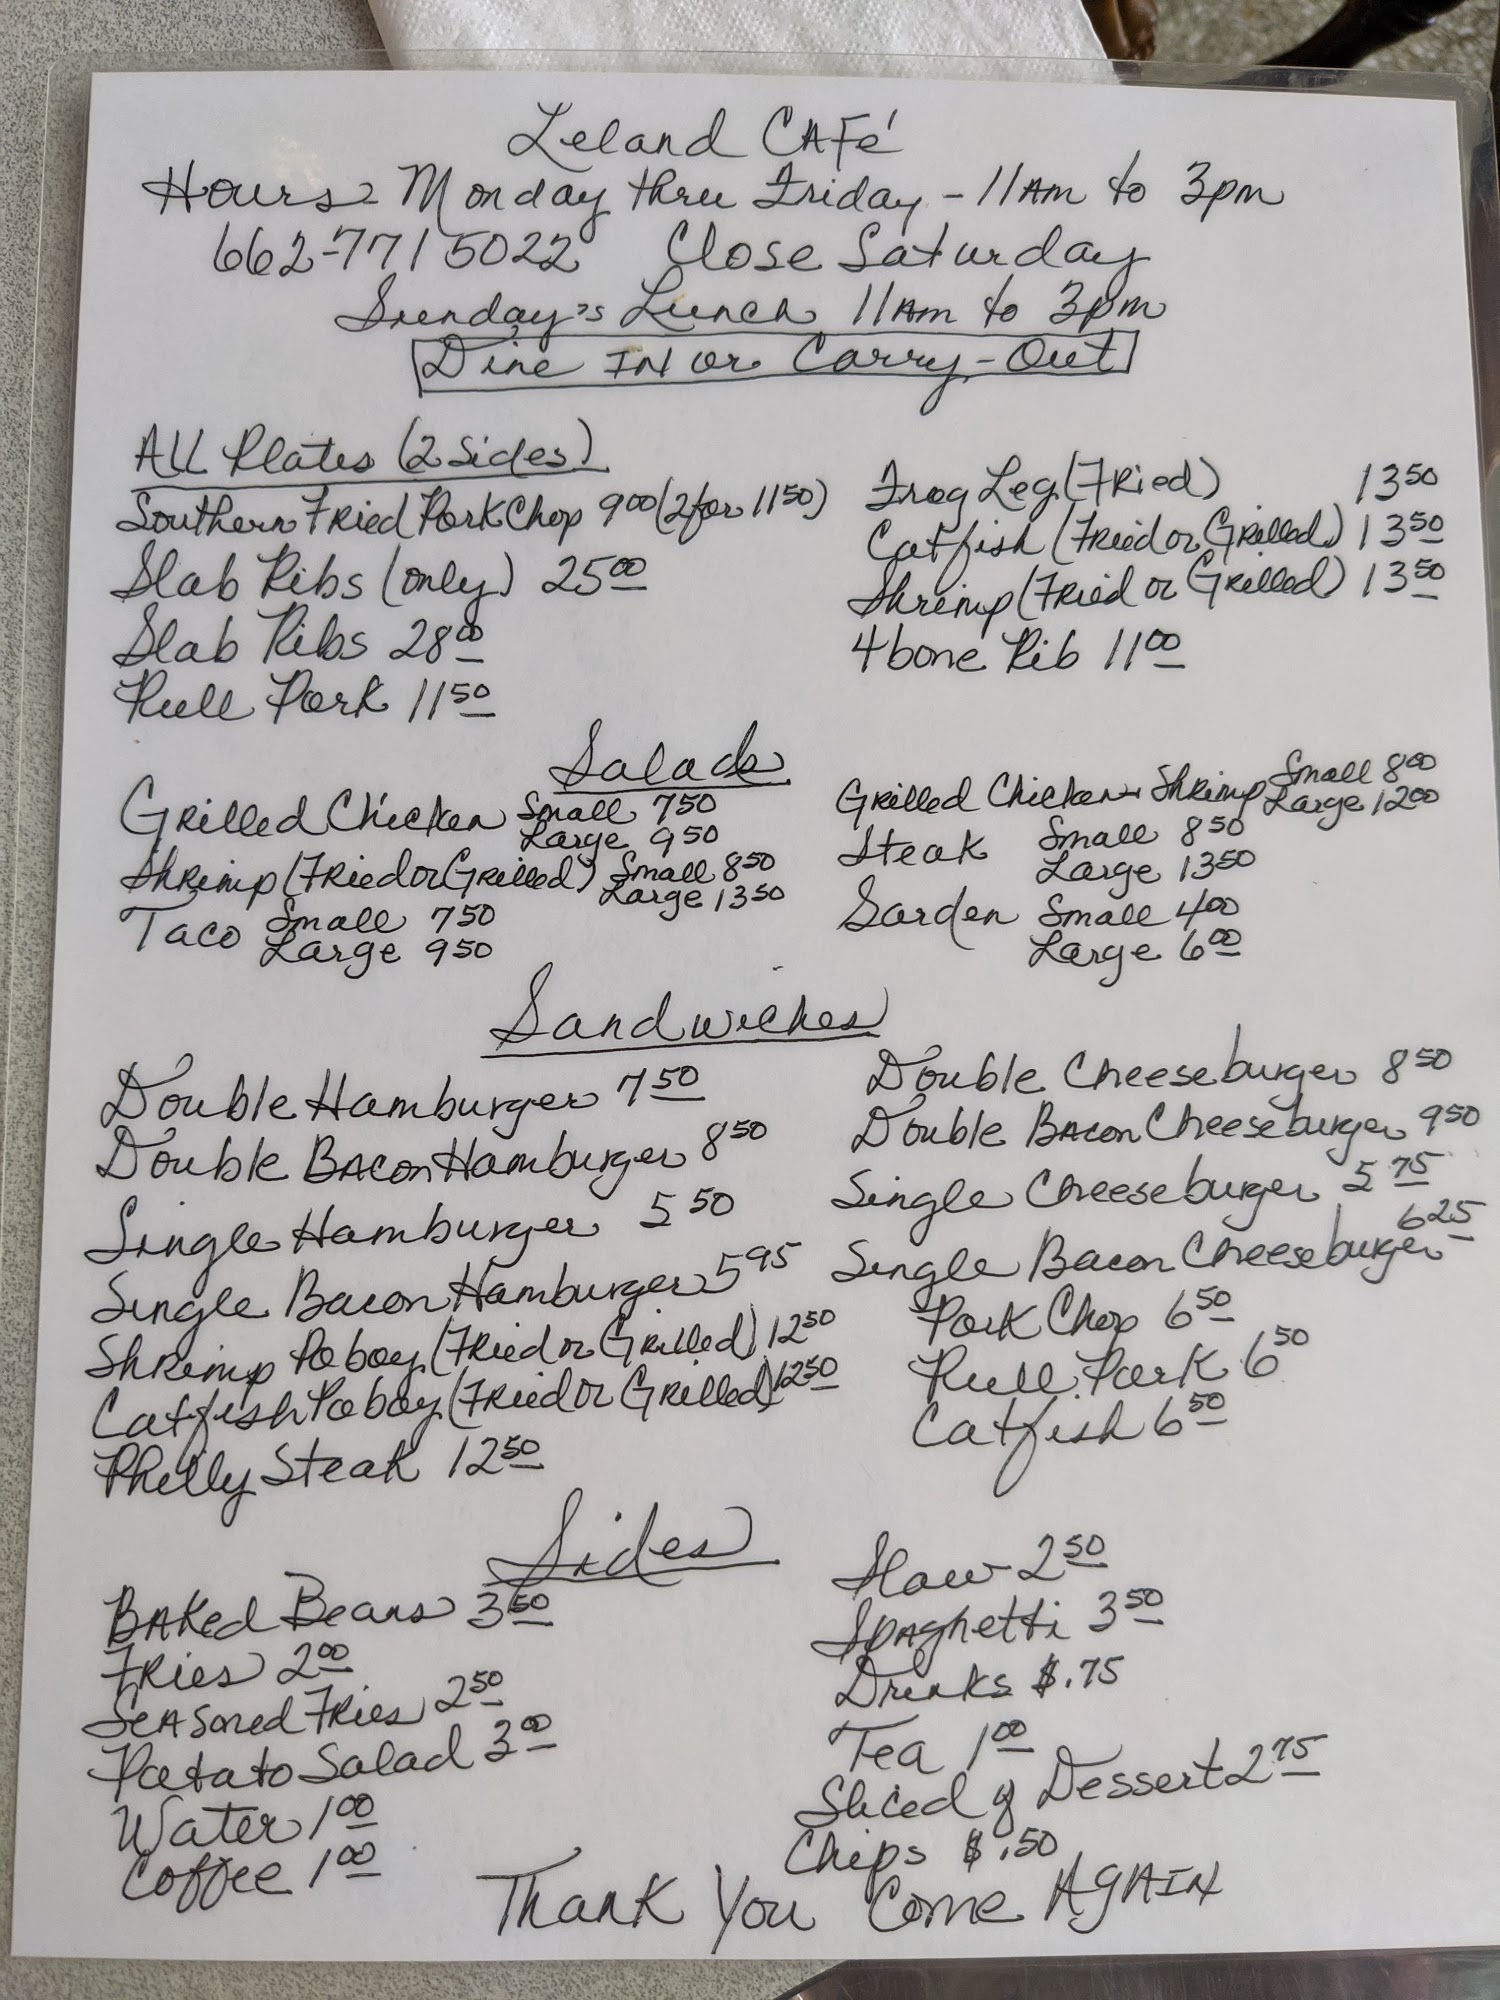 Leland CAFé
Hours: Monday thru Friday - 11Am to 3pm
662-771 5022 Close Saturday
Sunday's Lunch 11Am to 3pm
Dine IN or Carry-Out
All Plates (2 Sides)
Southern Fried Pork Chop 9 00 (2 for 11 50)
Slab Ribs (only) 25 00
Slab Ribs 28 00
Pull Pork 11 50
Frog Leg (Fried) 13 50
Catfish (Fried or Grilled) 13 50
Shrimp (Fried or Grilled) 13 50
4 bone Rib 11 00
Salads
Grilled Chicken Small 7 50
Large 9 50
Shrimp (Fried or Grilled) Small 8 50
Large 13 50
Taco Small 7 50
Large 9 50
Grilled Chicken + Shrimp Small 8 00
Large 12 00
Steak Small 8 50
Large 13 50
Garden Small 4 00
Large 6 00
Sandwiches
Double Hamburger 7 50
Double Bacon Hamburger 8 50
Single Hamburger 5 50
Single Bacon Hamburger 5 95
Shrimp Poboy (Fried or Grilled) 12 50
Catfish Poboy (Fried or Grilled) 12 50
Philly Steak 12 50
Double Cheeseburger 8 50
Double Bacon Cheeseburger 9 50
Single Cheeseburger 5 75
Single Bacon Cheeseburger 6 25
Pork Chop 6 50
Pull Pork 6 50
Catfish 6 50
Sides
Baked Beans 3 50
Fries 2 00
Seasoned Fries 2 50
Potato Salad 3 00
Water 1 00
Coffee 1 00
Slaw 2 50
Spaghetti 3 50
Drinks $.75
Tea 1 00
Sliced of Dessert 2 75
Chips $.50
Thank You Come AGAIN